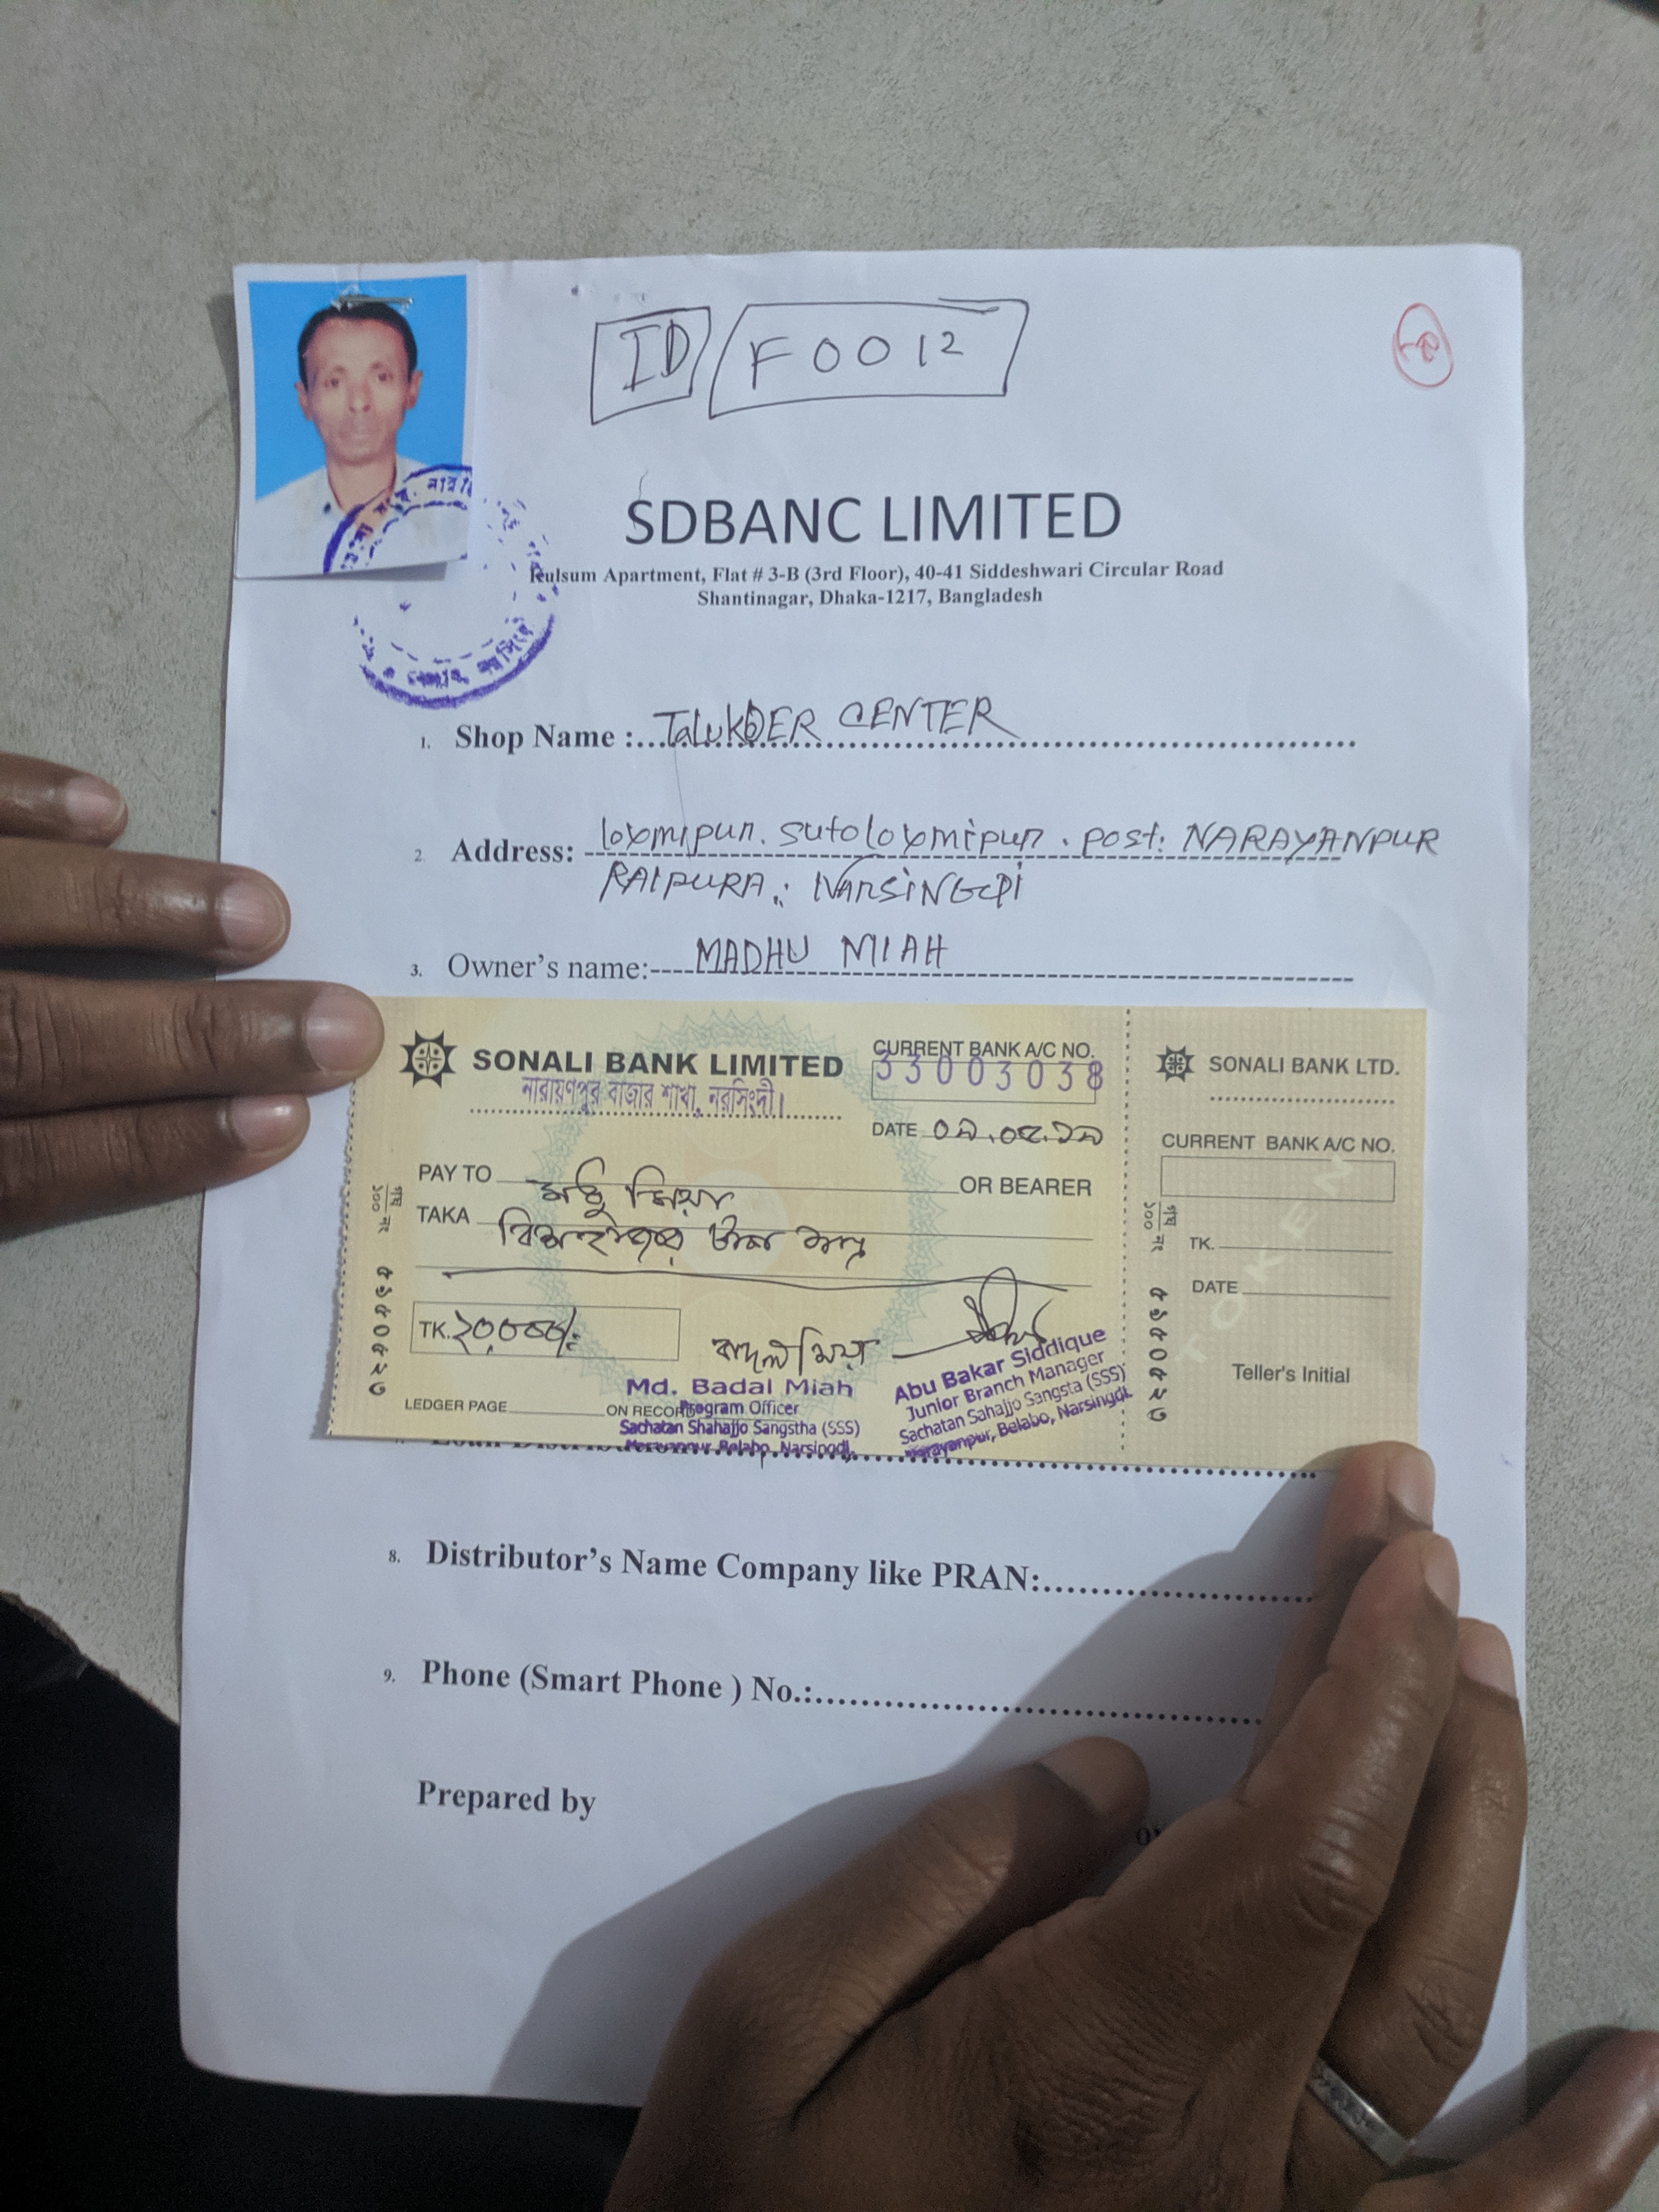 ID F0012
SDBANC LIMITED
Kulsum Apartment, Flat # 3-B (3rd Floor), 40-41 Siddeshwari Circular Road
Shantinagar, Dhaka-1217, Bangladesh
1. Shop Name : TaLukDER CENTER
2. Address: loxmipur. sutoloxmipur. post: NARAYANPUR
RAIPURA, NarsiNGdi
3. Owner's name: MADHU MIAH
SONALI BANK LIMITED
নারায়ণপুর বাজার শাখা, নরসিংদী।
CURRENT BANK A/C NO.
33003038
DATE
PAY TO মধু মিয়া OR BEARER
TAKA বিশ হাজার টাকা মাত্র
TK. ২০,০০০/=
বাদল মিয়া
Md. Badal Miah
Program Officer
Sachatan Shahajjo Sangstha (SSS)
Narayanpur, Belabo, Narsingdi.
Abu Bakar Siddique
Junior Branch Manager
Sachatan Sahajjo Sangsta (SSS)
Narayanpur, Belabo, Narsingdi.
LEDGER PAGE ON RECORD
SONALI BANK LTD.
CURRENT BANK A/C NO.
TK.
DATE
TOKEN
Teller's Initial
8. Distributor's Name Company like PRAN:
9. Phone (Smart Phone ) No.:
Prepared by